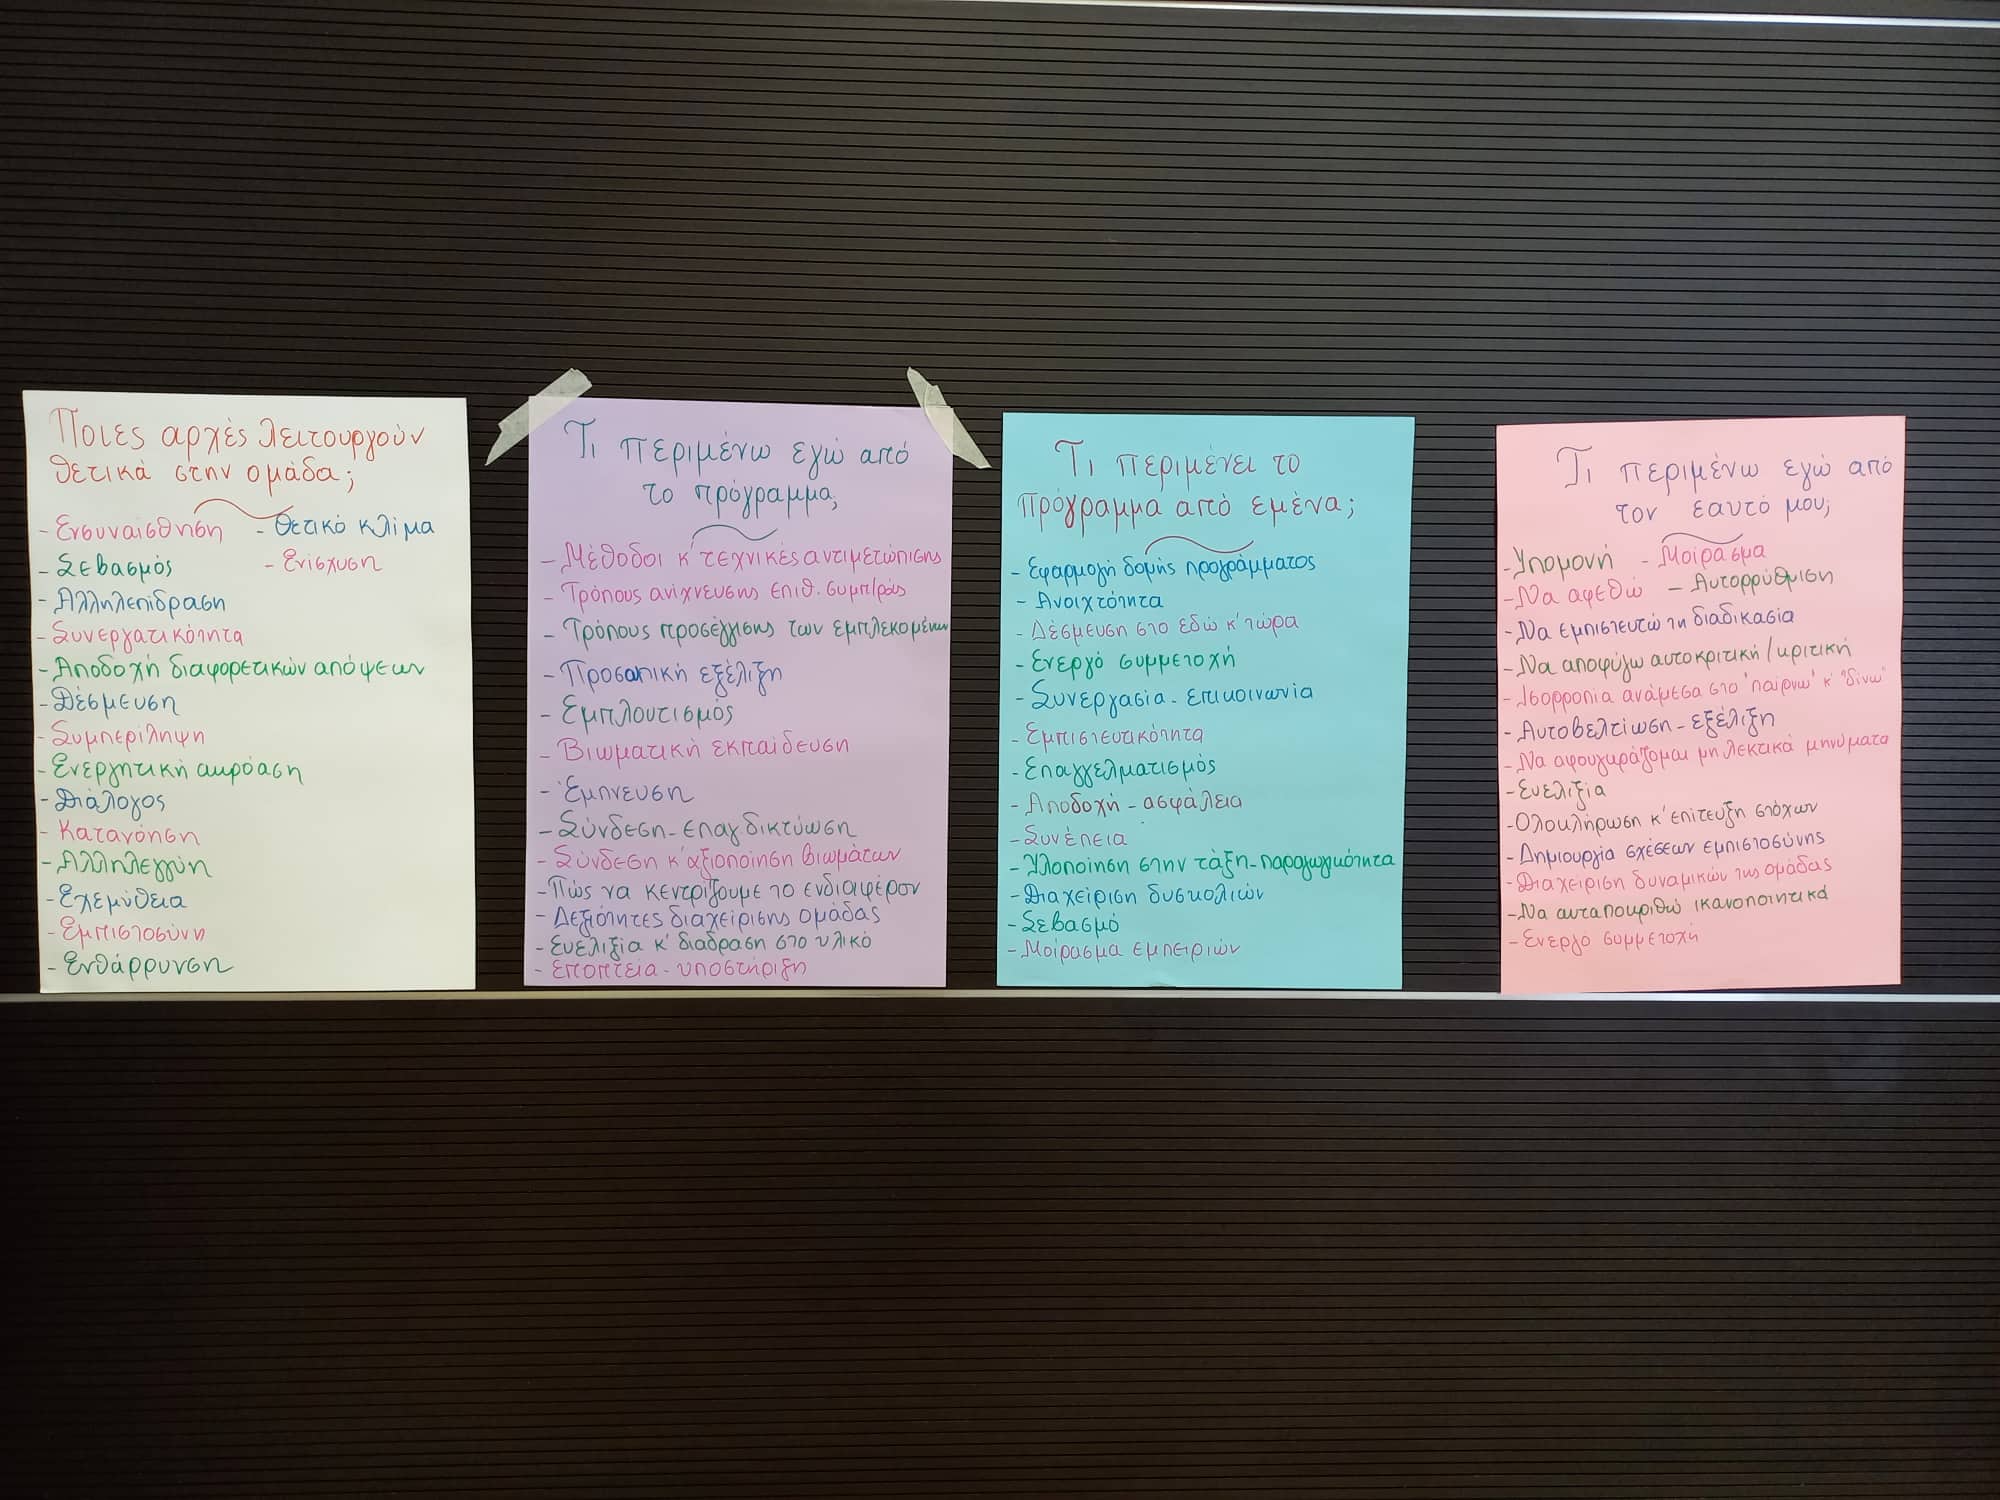 Ποιες αρχές λειτουργούν
θετικά στην ομάδα;
- Ενσυναίσθηση
- Θετικό κλίμα
- Σεβασμός
- Ενίσχυση
- Αλληλεπίδραση
- Συνεργατικότητα
- Αποδοχή διαφορετικών απόψεων
- Δέσμευση
- Συμπερίληψη
- Ενεργητική ακρόαση
- Διάλογος
- Κατανόηση
- Αλληλεγγύη
- Εχεμύθεια
- Εμπιστοσύνη
- Ενθάρρυνση
Τι περιμένω εγώ από
το πρόγραμμα;
- Μέθοδοι κ' τεχνικές αντιμετώπισης
- Τρόπους ανίχνευσης επιθ. συμπ/ράς
- Τρόπους προσέγγισης των εμπλεκομένων
- Προσωπική εξέλιξη
- Εμπλουτισμός
- Βιωματική εκπαίδευση
- Έμπνευση
- Σύνδεση - επαγ δικτύωση
- Σύνδεση κ' αξιοποίηση βιωμάτων
- Πώς να κεντρίζουμε το ενδιαφέρον
- Δεξιότητες διαχείρισης ομάδας
- Ευελιξία κ' διάδραση στο υλικό
- Εποπτεία - υποστήριξη
Τι περιμένει το
πρόγραμμα από εμένα;
- Εφαρμογή δομής προγράμματος
- Ανοιχτότητα
- Δέσμευση στο εδώ κ' τώρα
- Ενεργό συμμετοχή
- Συνεργασία - επικοινωνία
- Εμπιστευτικότητα
- Επαγγελματισμός
- Αποδοχή - ασφάλεια
- Συνέπεια
- Υλοποίηση στην τάξη - παραγωγικότητα
- Διαχείριση δυσκολιών
- Σεβασμό
- Μοίρασμα εμπειριών
Τι περιμένω εγώ από
τον εαυτό μου;
- Υπομονή
- Μοίρασμα
- Να αφεθώ
- Αυτορρύθμιση
- Να εμπιστευτώ τη διαδικασία
- Να αποφύγω αυτοκριτική / κριτική
- Ισορροπία ανάμεσα στο 'παίρνω' κ' 'δίνω'
- Αυτοβελτίωση - εξέλιξη
- Να αφουγκράζομαι μη λεκτικά μηνύματα
- Ευελιξία
- Ολοκλήρωση κ' επίτευξη στόχων
- Δημιουργία σχέσεων εμπιστοσύνης
- Διαχείριση δυναμικών της ομάδας
- Να ανταποκριθώ ικανοποιητικά
- Ενεργό συμμετοχή